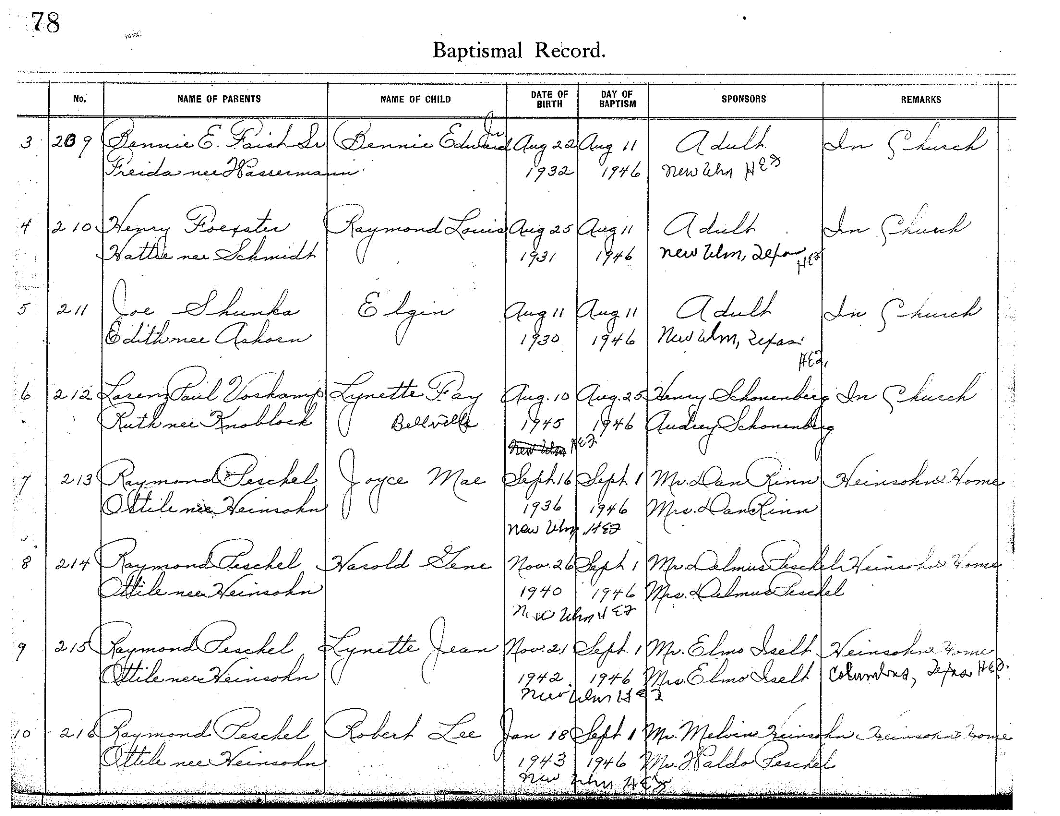 78
Baptismal Record.
No. NAME OF PARENTS NAME OF CHILD DATE OF BIRTH DAY OF BAPTISM SPONSORS REMARKS
3 209 Bennie E. Faish Sr Bennie Edward Jr Aug 22 Aug 11 Adult In Church
Freida nee Wassermann 1932 1946 New Ulm HEZ
4 210 Henry Foerster Raymond Louis Aug 25 Aug 11 Adult In Church
Hattie nee Schmidt 1931 1946 New Ulm, Texas HEZ
5 211 Joe Shunka Elgin Aug 11 Aug 11 Adult In Church
Edith nee Ashorn 1930 1946 New Ulm, Texas HEZ.
6 212 Lorenz Paul Voskamp Lynette Fay Aug. 10 Aug. 25 Henry Schonenberg In Church
Ruth nee Knoblock Bellville 1945 1946 Audrey Schonenberg
New Ulm HEZ
7 213 Raymond Peschel Joyce Mae Sept 16 Sept 1 Mr. Dan Rinn Heinsohn's Home
Ottilie nee Heinsohn 1936 1946 Mrs. Dan Rinn
New Ulm HEZ
8 214 Raymond Peschel Harold Gene Nov. 26 Sept 1 Mr. Delmus Peschel Heinsohn's Home
Ottile nee Heinsohn 1940 1946 Mrs. Delmus Peschel
New Ulm HEZ
9 215 Raymond Peschel Lynette Jean Nov. 21 Sept. 1 Mr. Elmo Iselt Heinsohn's Home
Ottilie nee Heinsohn 1942 1946 Mrs Elmo Iselt Columbus, Texas HEZ.
New Ulm HEZ
10 216 Raymond Peschel Robert Lee Jan 18 Sept 1 Mr. Melvin Heinsohn Heinsohn's Home
Ottile nee Heinsohn 1943 1946 Mr. Waldo Peschel
New Ulm HEZ